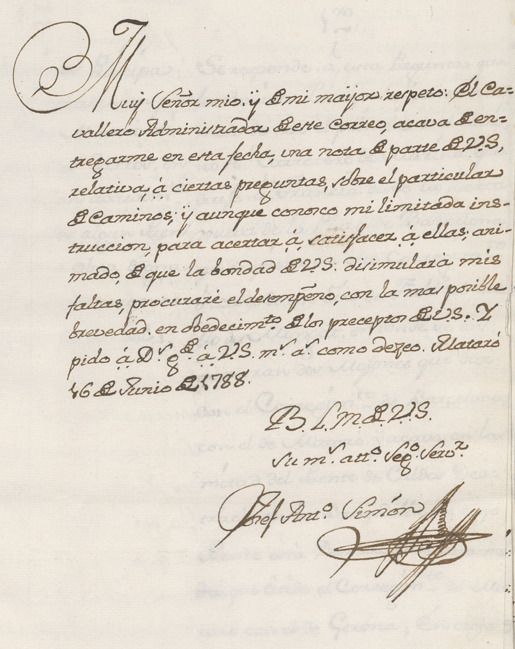 Muy Señor mio, ÿ de mi maÿor respeto: El Ca-
vallero Administrador de este Correo, acava de en-
tregarme en esta fecha, una nota de parte de V.S,
relativa, à ciertas preguntas, sobre el particular
de Caminos; ÿ aunque conosco mi limitada ins-
truccion, para acertar à satisfacer à ellas, ani-
mado, de que la bondad de V.S. disimularà mis
faltas, procuraré el desempeño, con la mas posible
brevedad. en obedecim.to de los preceptos de V.S. Y
pido à D.s g.de à V.S. m.s a.s como dezeo. Mataró
16 de Junio de 1788.
B. L. M. de V.S.
su m.s att.o Seg.o Serv.r
Josef Ant.o Simón